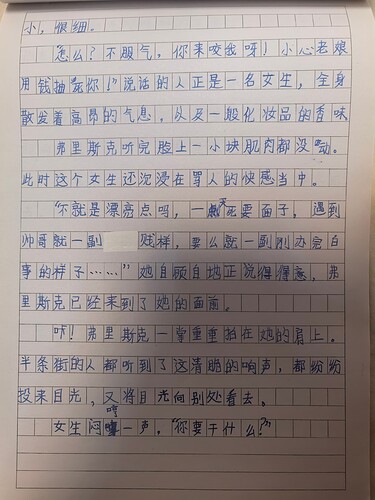 小，很细。
怎么？不服气，你来咬我呀！小心老娘
用钱抽死你！”说话的人正是一名女生，全身
散发着高昂的气息，以及一般化妆品的香味
弗里斯克听完脸上一小块肌肉都没动。
此时这个女生还沉浸在骂人的快感当中。
“不就是漂亮点吗，一天死要面子，遇到
帅哥就一副 贱样，要么就一副刚办完白
事的样子……”她自顾自地正说得得意，弗
里斯克已经来到了她的面前。
咔！弗里斯克一掌重重拍在她的肩上。
半条街的人都听到了这清脆的响声，都纷纷
投来目光，又将目光向别处看去。
女生闷哼一声，“你要干什么？”